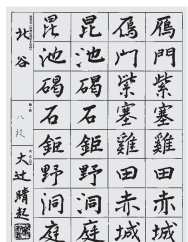 雁门紫塞雞田赤城
雁门紫塞雞田赤城
昆池碣石鉅野洞庭
昆池碣石鉅野洞庭
北谷
八段
大辻晴起